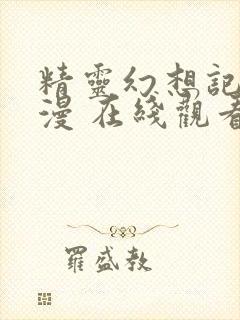 精靈幻想記
漫 在綫觀看
羅盛教